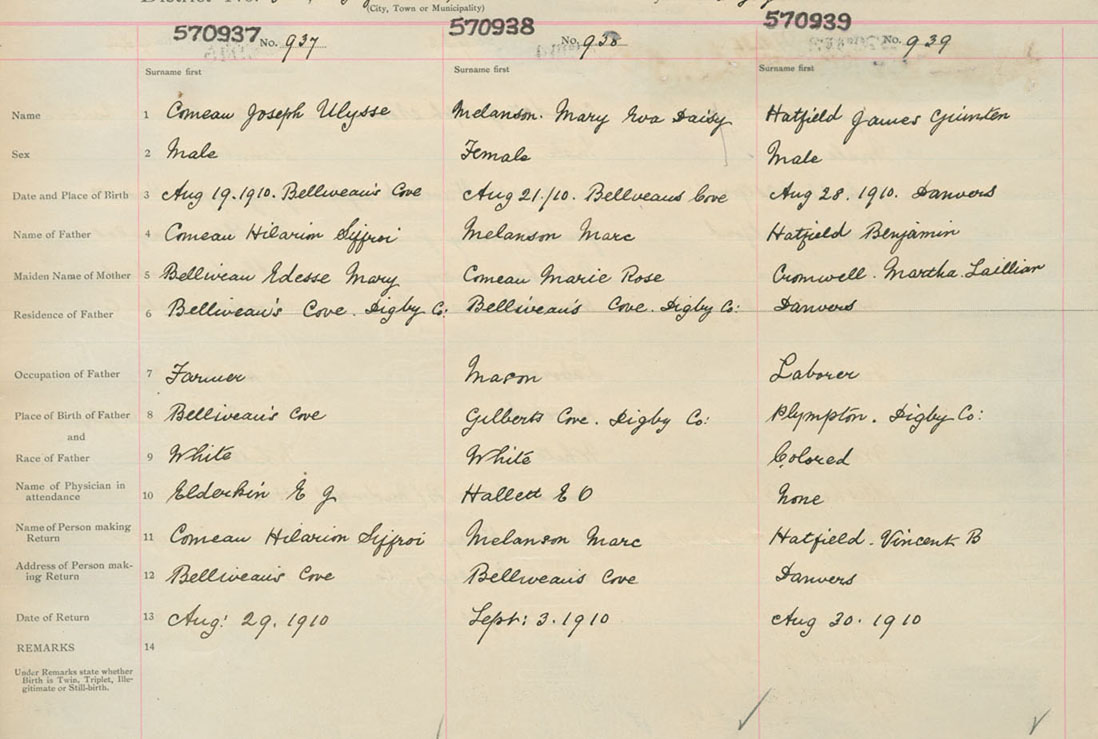 District No.
(City, Town or Municipality)
570937 No. 937 570938 No. 938 570939 No. 939
Surname first Surname first Surname first
Name 1 Comeau Joseph Ulysse Melanson. Mary Eva Daisy Hatfield James
Sex 2 Male Female Male
Date and Place of Birth 3 Aug 19.1910. Belliveau's Cove Aug 21/10. Belliveaus Cove Aug 28. 1910. Danvers
Name of Father 4 Comeau Hilarion Siffroi Melanson Marc Hatfield Benjamin
Maiden Name of Mother 5 Belliveau Edesse Mary Comeau Marie Rose Cromwell. Martha Laillian
Residence of Father 6 Belliveau's Cove. Digby Co: Belliveau's Cove. Digby Co: Danvers
Occupation of Father 7 Farmer Mason Laborer
Place of Birth of Father 8 Belliveau's Cove Gilberts Cove. Digby Co: Plympton. Digby Co:
and
Race of Father 9 White White Colored
Name of Physician in
attendance 10 Elderkin E J Hallett E O None
Name of Person making
Return 11 Comeau Hilarion Siffroi Melanson Marc Hatfield. Vincent B
Address of Person mak-
ing Return 12 Belliveau's Cove Belliveau's Cove Danvers
Date of Return 13 Aug: 29. 1910 Sept: 3. 1910 Aug 30. 1910
REMARKS 14
Under Remarks state whether
Birth is Twin, Triplet, Ille-
gitimate or Still-birth.